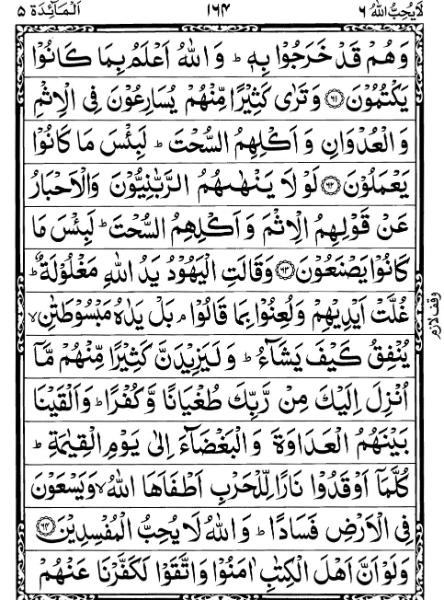 لَا يُحِبُّ اللهُ ٦
١٦٤
اَلْمَآئِدَة ٥
وَهُمْ قَدْ خَرَجُوْا بِهٖ ؕ وَ اللهُ اَعْلَمُ بِمَا كَانُوْا
يَكْتُمُوْنَ ﴿٦١﴾ وَ تَرٰى كَثِيْرًا مِّنْهُمْ يُسَارِعُوْنَ فِي الْاِثْمِ
وَ الْعُدْوَانِ وَ اَكْلِهِمُ السُّحْتَ ؕ لَبِئْسَ مَا كَانُوْا
يَعْمَلُوْنَ ﴿٦٢﴾ لَوْ لَا يَنْهٰىهُمُ الرَّبّٰنِيُّوْنَ وَالْاَحْبَارُ
عَنْ قَوْلِهِمُ الْاِثْمَ وَ اَكْلِهِمُ السُّحْتَ ؕ لَبِئْسَ مَا
كَانُوْا يَصْنَعُوْنَ ﴿٦٣﴾ وَقَالَتِ الْيَهُوْدُ يَدُ اللهِ مَغْلُوْلَةٌ ؕ
غُلَّتْ اَيْدِيْهِمْ وَلُعِنُوْا بِمَا قَالُوْا ۘ بَلْ يَدٰهُ مَبْسُوْطَتٰنِ ۙ
وقف لازم
يُنْفِقُ كَيْفَ يَشَآءُ ؕ وَ لَيَزِيْدَنَّ كَثِيْرًا مِّنْهُمْ مَّاۤ
اُنْزِلَ اِلَيْكَ مِنْ رَّبِّكَ طُغْيَانًا وَّ كُفْرًا ؕ وَ اَلْقَيْنَا
بَيْنَهُمُ الْعَدَاوَةَ وَ الْبَغْضَآءَ اِلٰى يَوْمِ الْقِيٰمَةِ ؕ
كُلَّمَاۤ اَوْقَدُوْا نَارًا لِّلْحَرْبِ اَطْفَاَهَا اللهُ ۙ وَيَسْعَوْنَ
فِي الْاَرْضِ فَسَادًا ؕ وَ اللهُ لَا يُحِبُّ الْمُفْسِدِيْنَ ﴿٦٤﴾
وَلَوْ اَنَّ اَهْلَ الْكِتٰبِ اٰمَنُوْا وَاتَّقَوْا لَكَفَّرْنَا عَنْهُمْ